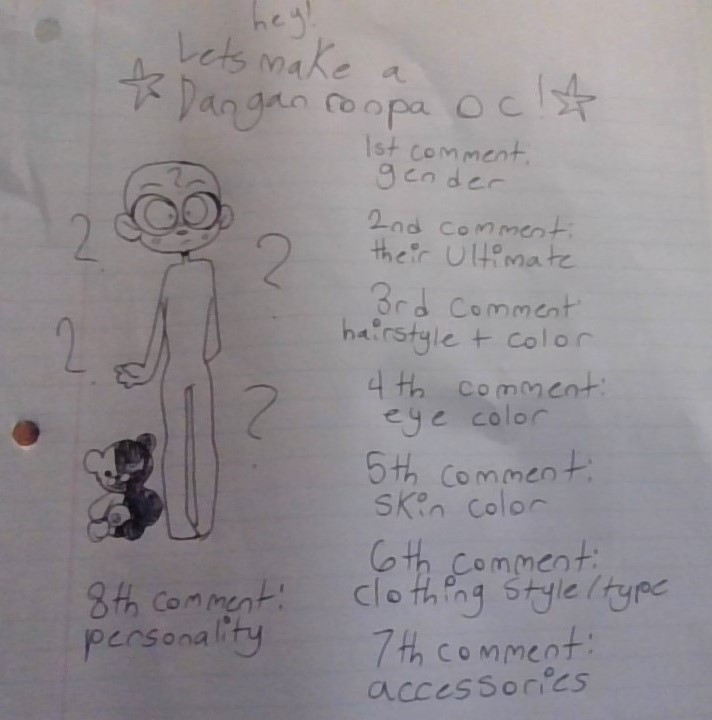 hey!
Lets make a
Danganronpa OC!
1st comment:
gender
2nd comment:
their Ultimate
3rd comment
hairstyle + color
4th comment:
eye color
5th comment:
skin color
6th comment:
clothing style/type
7th comment:
accessories
8th comment:
personality
?
?
?
?
?